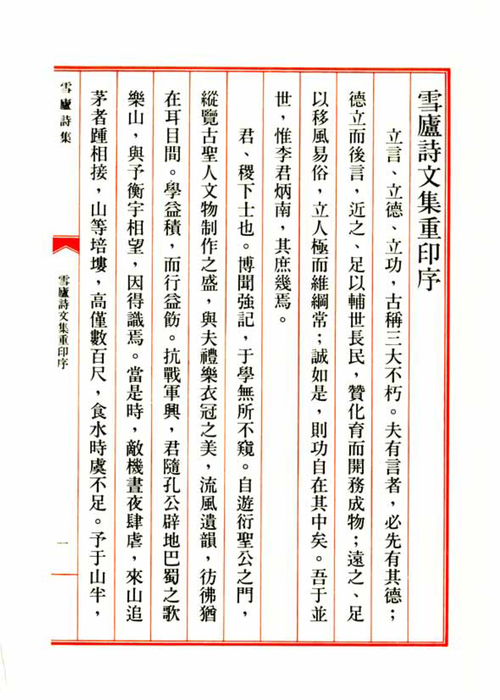 雪廬詩文集重印序
立言、立德、立功，古稱三大不朽。夫有言者，必先有其德；
德立而後言，近之、足以輔世長民，贊化育而開務成物；遠之、足
以移風易俗，立人極而維綱常；誠如是，則功自在其中矣。吾于並
世，惟李君炳南，其庶幾焉。
君、稷下士也。博聞強記，于學無所不窺。自遊衍聖公之門，
縱覽古聖人文物制作之盛，與夫禮樂衣冠之美，流風遺韻，彷彿猶
在耳目間。學益積，而行益飭。抗戰軍興，君隨孔公辟地巴蜀之歌
樂山，與予衡宇相望，因得識焉。當是時，敵機晝夜肆虐，來山追
茅者踵相接，山等培塿，高僅數百尺，食水時虞不足。予于山半，
雪廬詩集
雪廬詩文集重印序
一